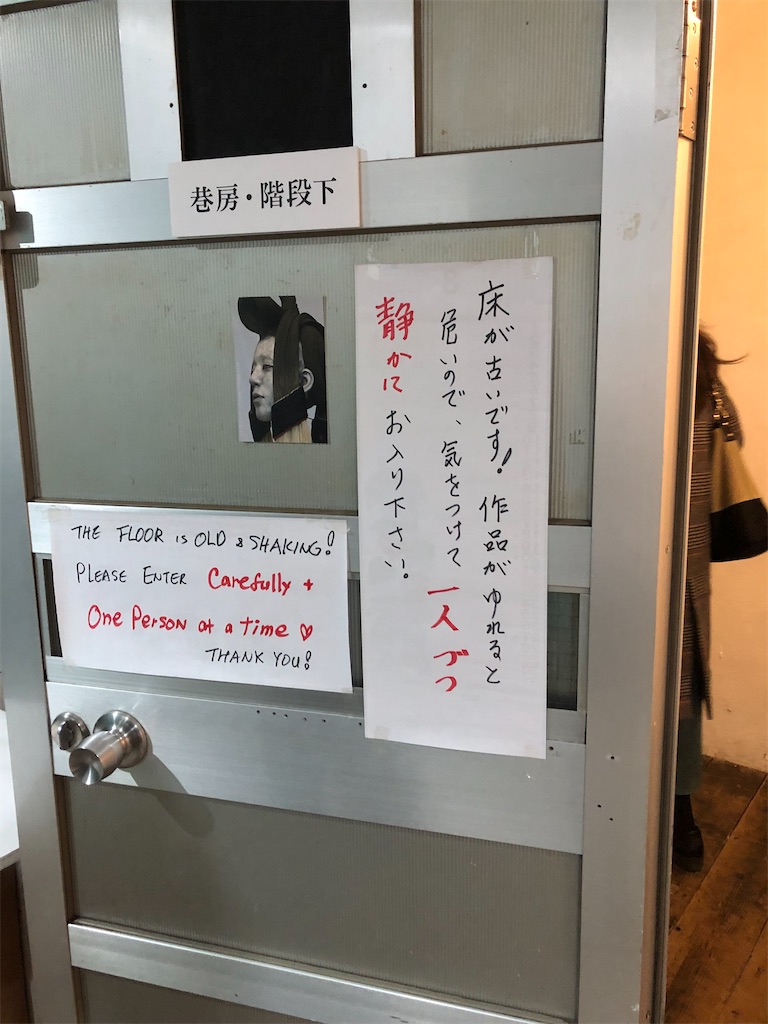 巷房・階段下
床が古いです！作品がゆれると
危いので、気をつけて一人づつ
静かにお入り下さい。
THE FLOOR is OLD & SHAKING!
PLEASE ENTER Carefully +
One Person at a time ♡
THANK YOU!